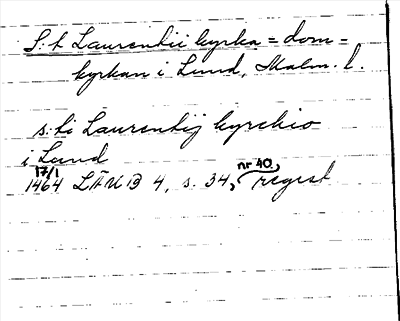 S:t Laurentii kyrka = dom-
kyrkan i Lund, Malm. l.
s:ti Laurentij kyrckio
i Lund
17/1 1464 LÄUB 4, s. 34, nr 40, regest